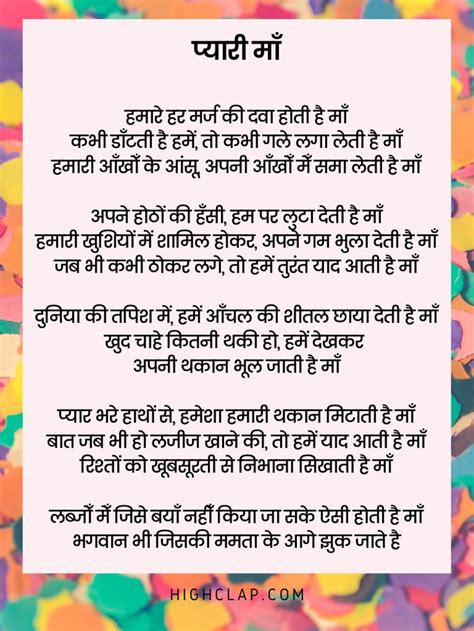 प्यारी माँ
हमारे हर मर्ज की दवा होती है माँ
कभी डाँटती है हमें, तो कभी गले लगा लेती है माँ
हमारी आँखोँ के आंसू, अपनी आँखोँ मेँ समा लेती है माँ
अपने होठों की हँसी, हम पर लुटा देती है माँ
हमारी खुशियों में शामिल होकर, अपने गम भुला देती है माँ
जब भी कभी ठोकर लगे, तो हमें तुरंत याद आती है माँ
दुनिया की तपिश में, हमें आँचल की शीतल छाया देती है माँ
खुद चाहे कितनी थकी हो, हमें देखकर
अपनी थकान भूल जाती है माँ
प्यार भरे हाथों से, हमेशा हमारी थकान मिटाती है माँ
बात जब भी हो लजीज खाने की, तो हमें याद आती है माँ
रिश्तों को खूबसूरती से निभाना सिखाती है माँ
लब्जोँ मेँ जिसे बयाँ नहीँ किया जा सके ऐसी होती है माँ
भगवान भी जिसकी ममता के आगे झुक जाते है
HIGHCLAP.COM